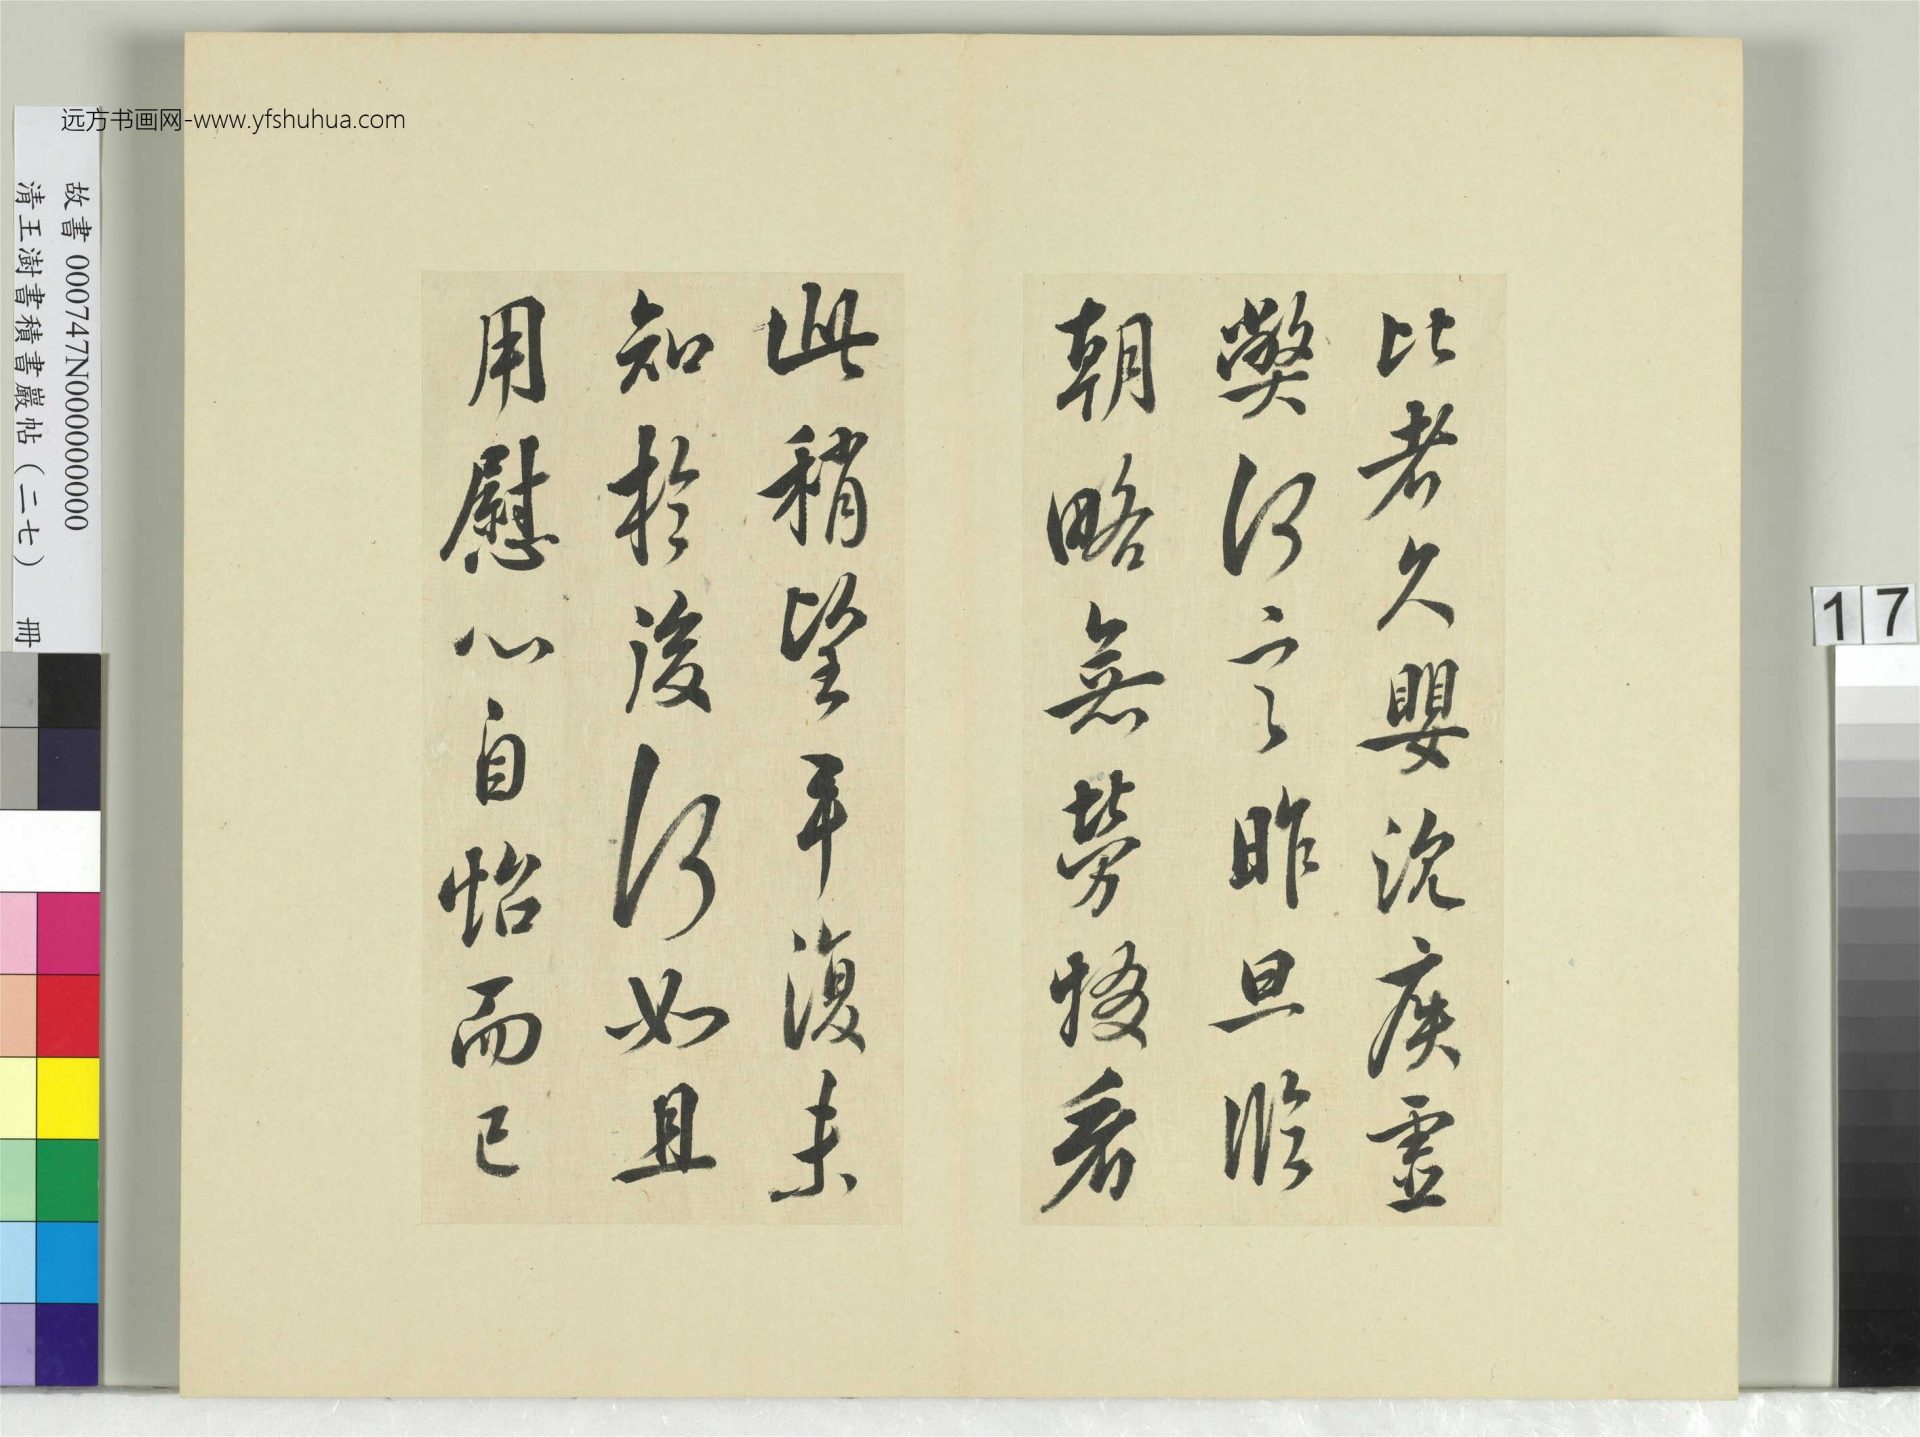 远方书画网-www.yfshuhua.com
故書 000747N000000000
清王澍書積書巖帖（二七） 冊
17
比者久嬰沈疾虛
弊何言昨旦臨
朝略無勞發看
此稍望平復未
知於後何如且
用慰心自怡而已